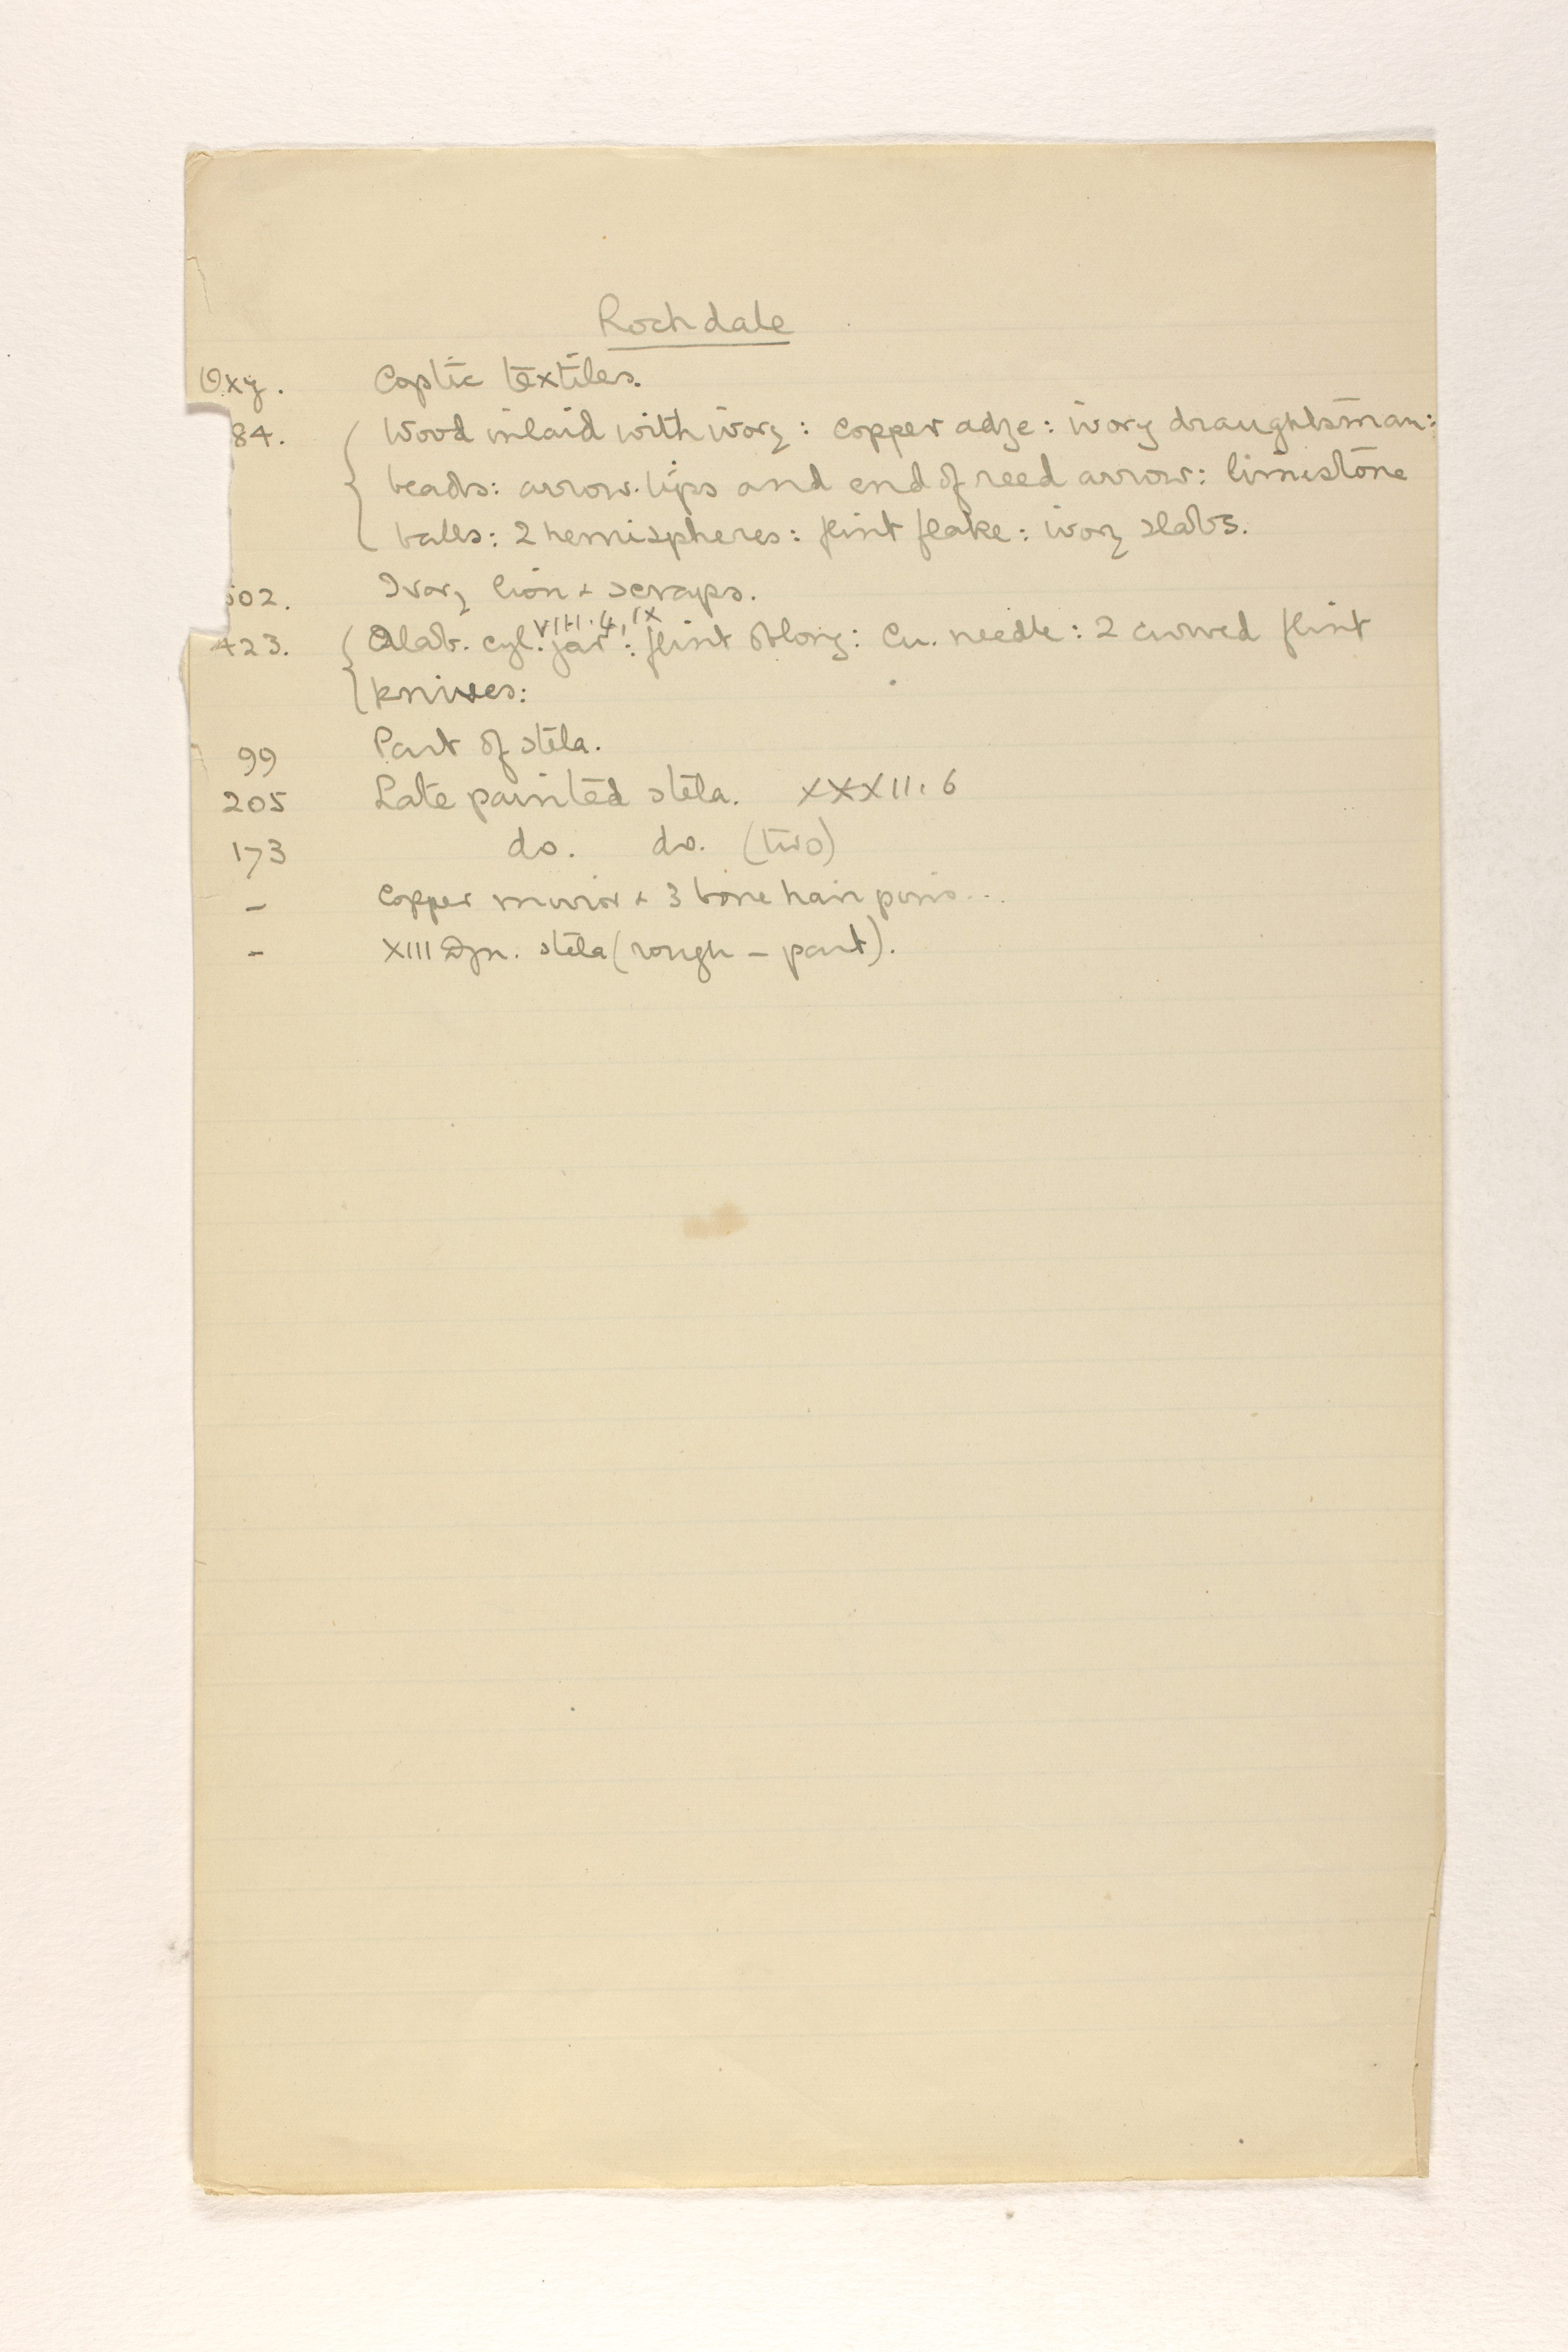 Rochdale
Oxy. Coptic textiles.
84. Wood inlaid with ivory: copper adze: ivory draughtsman:
beads: arrow-tips and end of reed arrow: limestone
balls: 2 hemispheres: flint flake: ivory slabs.
02. Ivory lion + scraps.
VIII.4, IX
423. Alab. cyl. jar: flint oblong: Cu. needle: 2 curved flint
knives:
99 Part of stela.
205 Late painted stela. XXXII.6
173 do. do. (two)
- Copper mirror + 3 bone hair pins...
- XIII Dyn. stela (rough - part).